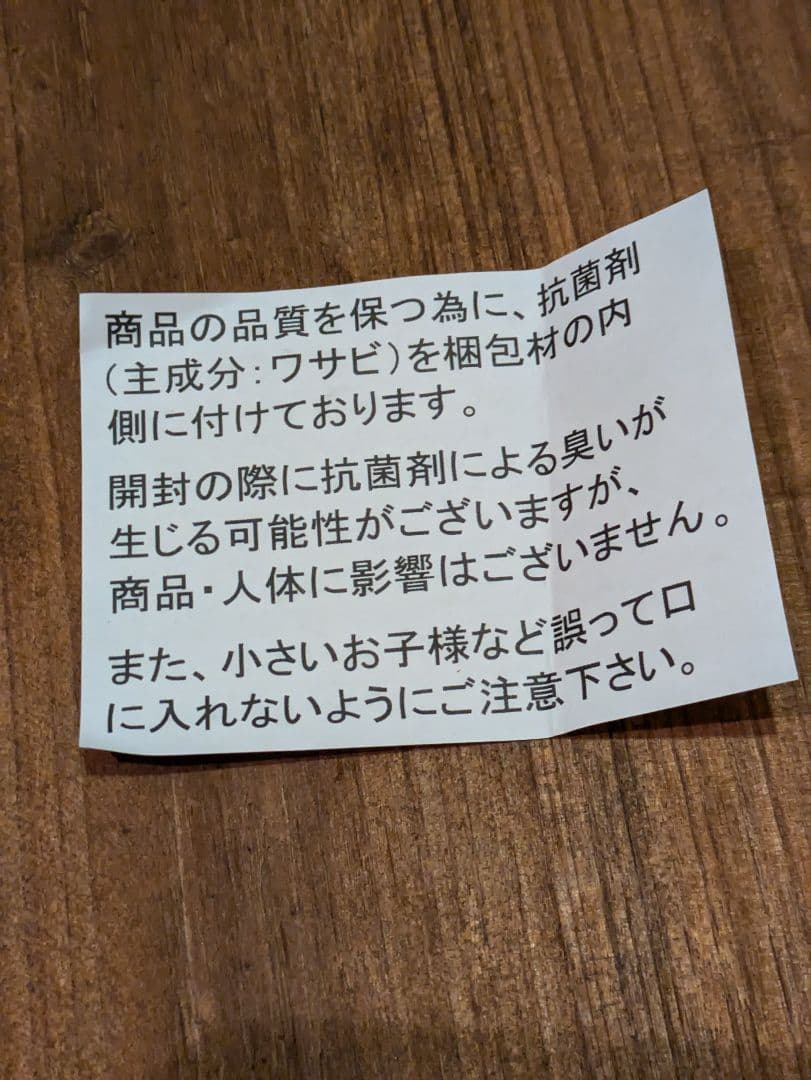 商品の品質を保つ為に、抗菌剤
(主成分:ワサビ)を梱包材の内
側に付けております。
開封の際に抗菌剤による臭いが
生じる可能性がございますが、
商品・人体に影響はございません。
また、小さいお子様など誤って口
に入れないようにご注意下さい。